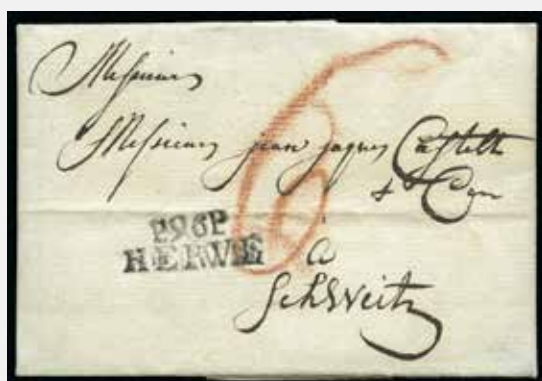 Messieurs
Messieurs jean jaques Castell
& Com
6
P.96.P
HERVE
à
Schweitz